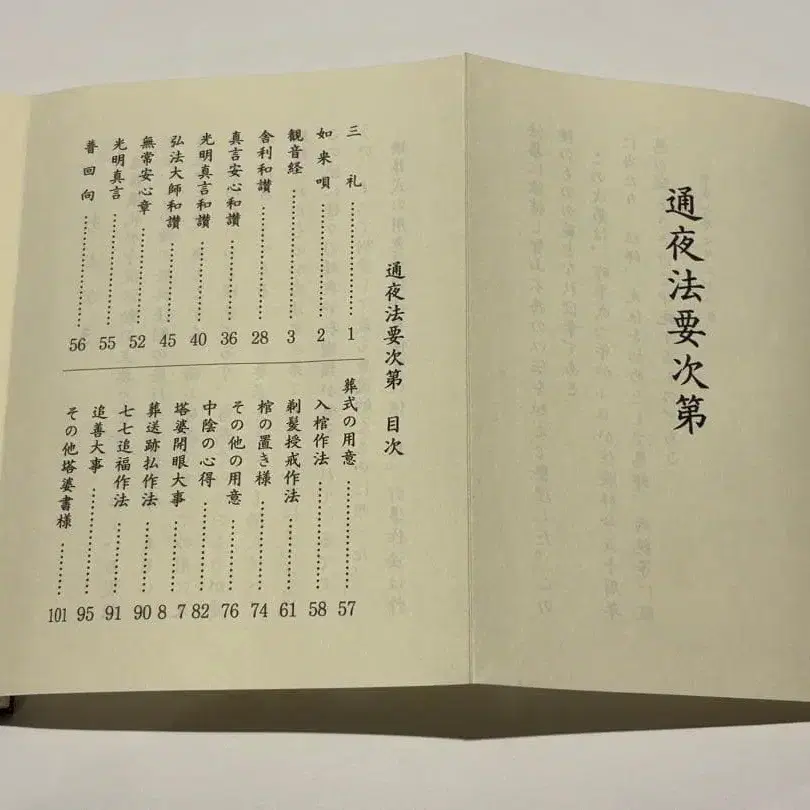 通夜法要次第
通夜法要次第　目次
三礼…………………1
如来唄…………………2
観音経…………………3
舎利和讃…………………28
真言安心和讃…………………36
光明真言和讃…………………40
弘法大師和讃…………………45
無常安心章…………………52
光明真言…………………55
普回向…………………56
葬式の用意…………………57
入棺作法…………………58
剃髪授戒作法…………………61
棺の置き様…………………74
その他の用意…………………76
中陰の心得…………………82
塔婆開眼大事…………………8 7
葬送跡払作法…………………90
七七追福作法…………………91
追善大事…………………95
その他塔婆書様…………………101